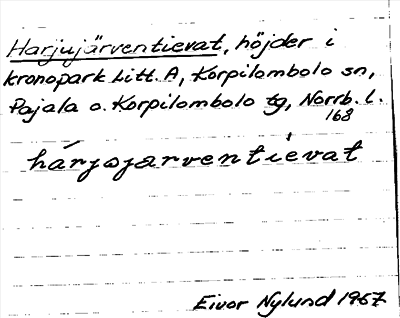 Harjujärventievat, höjder i
kronopark Litt. A, Korpilombolo sn,
Pajala o. Korpilombolo tg, Norrb. l.
168
hárjojarventìevat
Eivor Nylund 1967